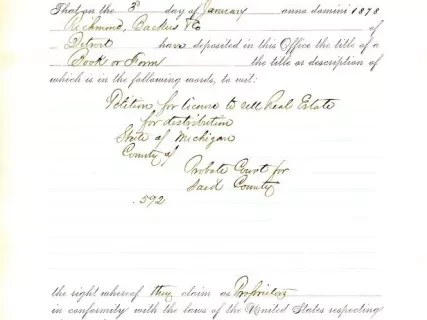 That on the 3d day of January anno domini 1878
Richmond, Backus & Co of
Detroit have deposited in this Office the title of a
Book or Form the title or description of
which is in the following words, to wit:
Petition for license to sell Real Estate
for distribution
State of Michigan
County of
Probate Court for
said County
592
the right whereof they claim as Proprietors
in conformity with the laws of the United States respecting